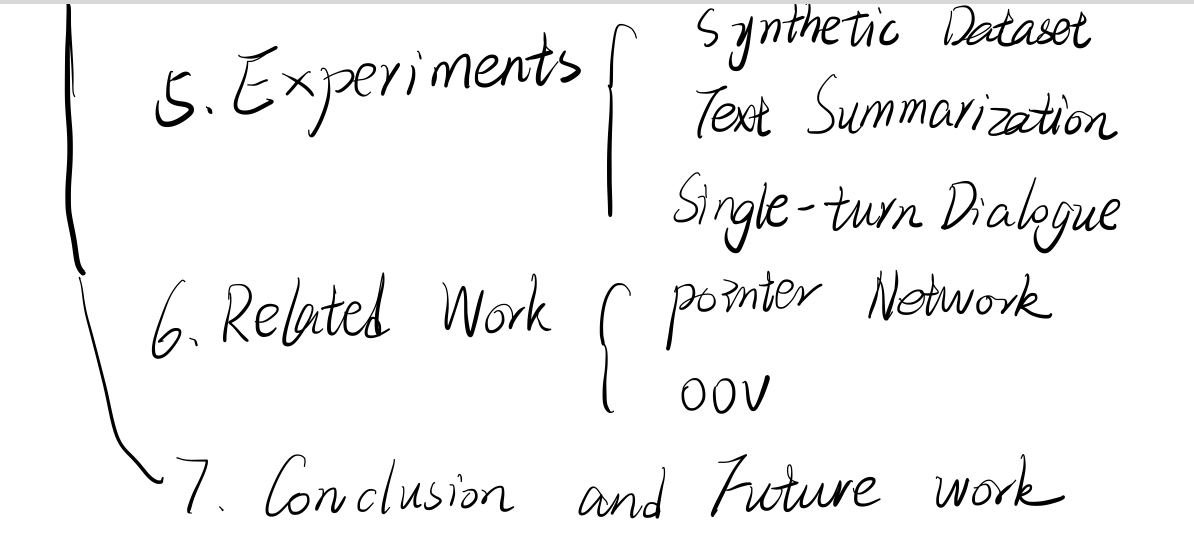 5. Experiments
Synthetic Dataset
Text Summarization
Single-turn Dialogue
6. Related Work
pointer Network
OOV
7. Conclusion and Future work